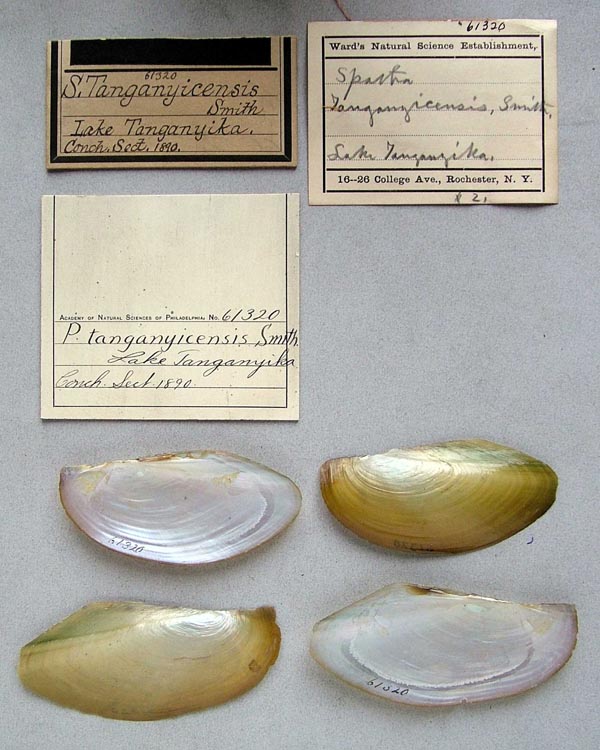 61320
S. Tanganyicensis
Smith
Lake Tanganyika.
Conch. Sect. 1890.
61320
Ward's Natural Science Establishment,
Spatha
Tanganyicensis, Smith.
Lake Tanganyika.
16--26 College Ave., Rochester, N. Y.
Academy of Natural Sciences of Philadelphia, No. 61320
P. tanganyicensis, Smith
Lake Tanganyika
Conch. Sect. 1890.
61320
61320
61320